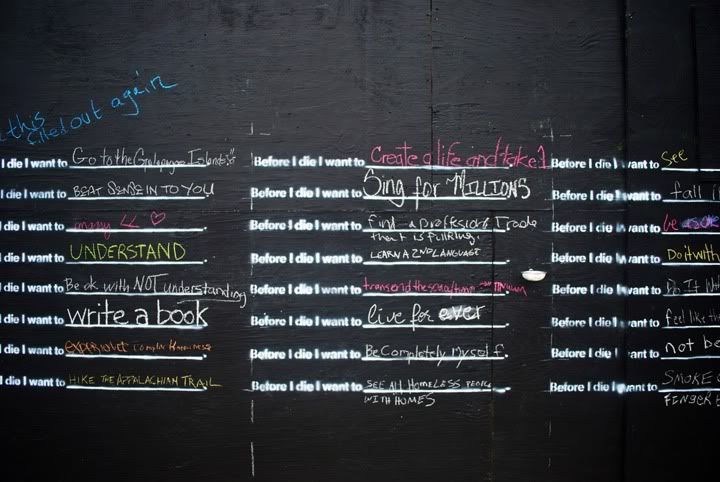 this
filled out again
I die I want to Go to the Galapagos Islands!!
I die I want to BEAT SENSE IN TO YOU
I die I want to marry
I die I want to UNDERSTAND
I die I want to Be ok with NOT understanding
I die I want to write a book
I die I want to EXPERIENCE Complete Happiness
I die I want to HIKE THE APPALACHIAN TRAIL
Before I die I want to Create a life and take 1
Before I die I want to Sing for MILLIONS
Before I die I want to find a profession/trade
that is fulfilling.
Before I die I want to LEARN A 2ND LANGUAGE
Before I die I want to transcend the space/time
Before I die I want to live for ever
Before I die I want to Be Completely Myself.
Before I die I want to SEE ALL HOMELESS PEOPLE
WITH HOMES
Before I die I want to see
Before I die I want to fall i
Before I die I want to be
Before I die I want to Do it with
Before I die I want to Do It
Before I die I want to feel like the
Before I die I want to not be
Before I die I want to SMOKE
FINGER